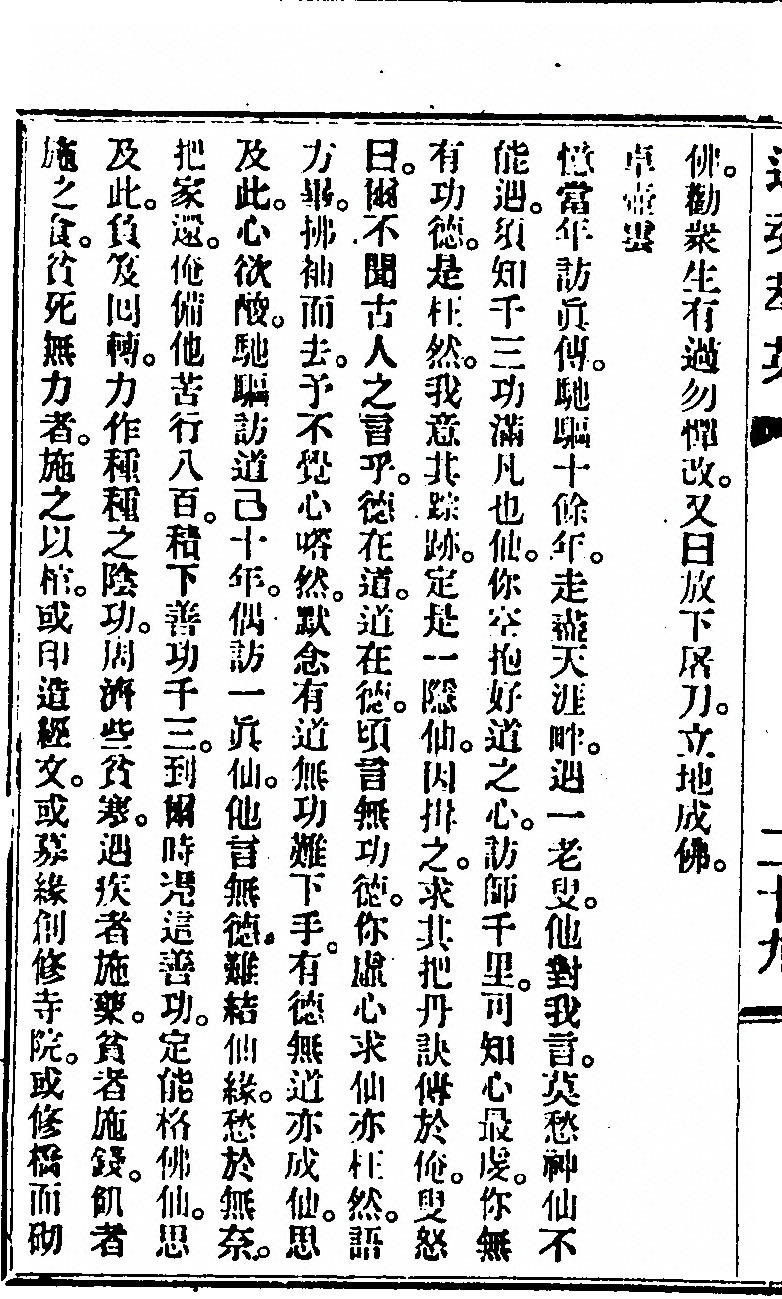 二十九
佛。勸衆生有過勿憚改。又曰放下屠刀。立地成佛。
卓壺雲
憶當年訪眞傳。馳驅十餘年。走盡天涯畔。遇一老叟。他對我言。莫愁神仙不
能遇。須知千三功滿凡也仙。你空抱好道之心。訪師千里。可知心最虔。你無
有功德。是枉然。我意其踪跡。定是一隱仙。因揖之。求其把丹訣傳於俺。叟怒
曰。爾不聞古人之言乎。德在道。道在德。頃言無功德。你虛心求仙亦枉然。語
方畢。拂袖而去。予不覺心喀然。默念有道無功難下手。有德無道亦成仙。思
及此。心欲酸。馳驅訪道己十年。偶訪一眞仙。他言無德。難結仙緣。愁於無奈。
把家還。俺備他苦行八百。積下善功千三。到爾時凴這善功。定能格佛仙。思
及此。負笈囘轉。力作種種之陰功。周濟些貧寒。遇疾者施藥。貧者施錢。飢者
施之食。貧死無力者。施之以棺。或印造經文。或募緣創修寺院。或修橋而砌